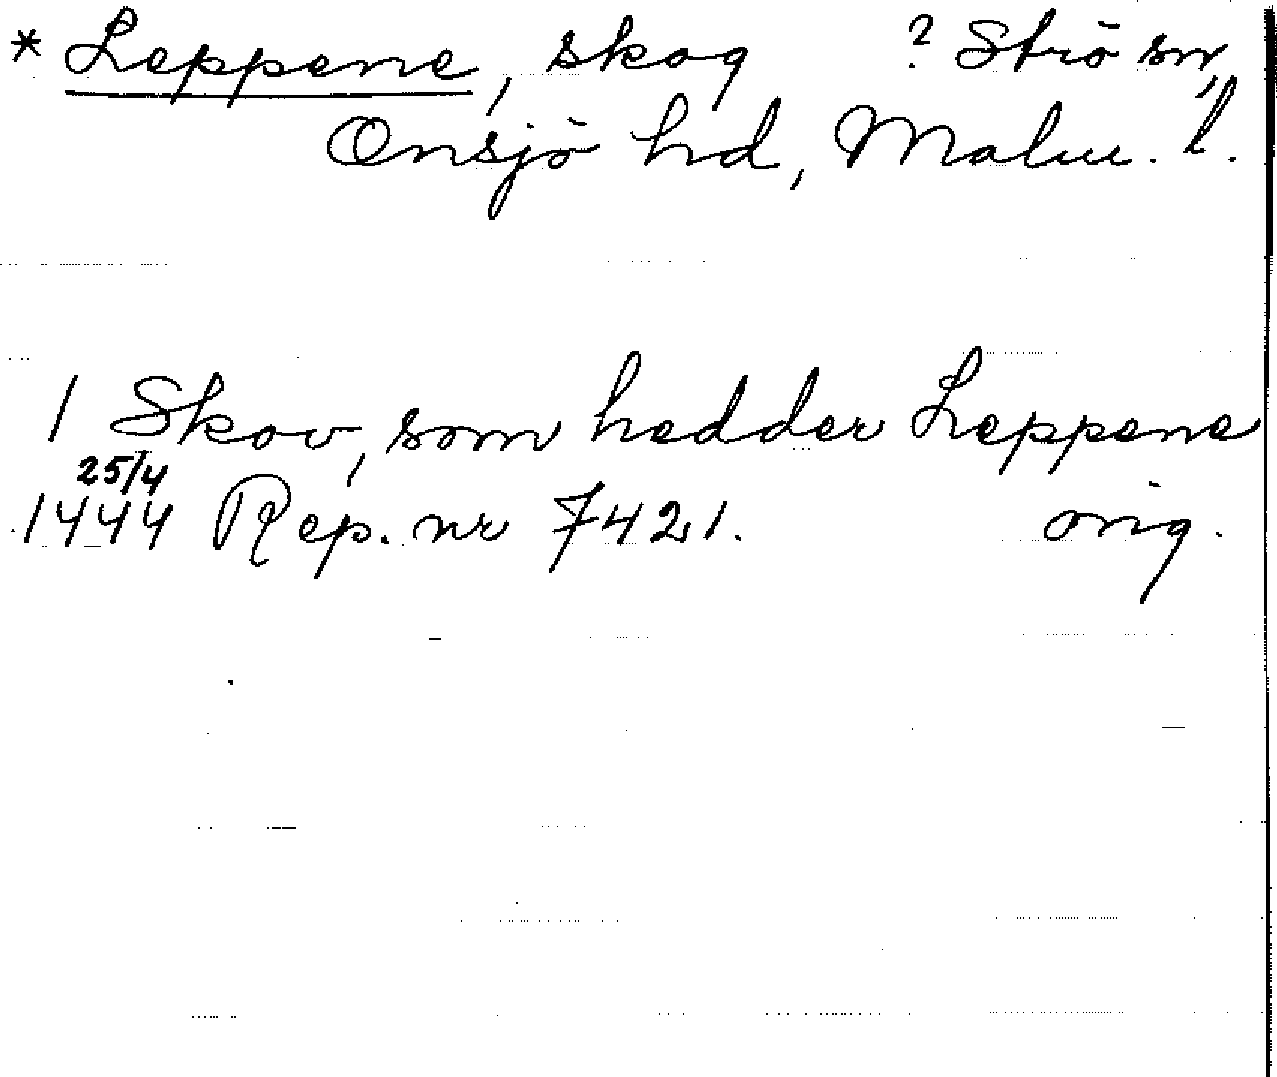 * Leppene, skog ? Strö sn,
Onsjö hd, Malm. l.
1 Skov, som hedder Leppene
25/4
1444 Rep. nr 7421. orig.